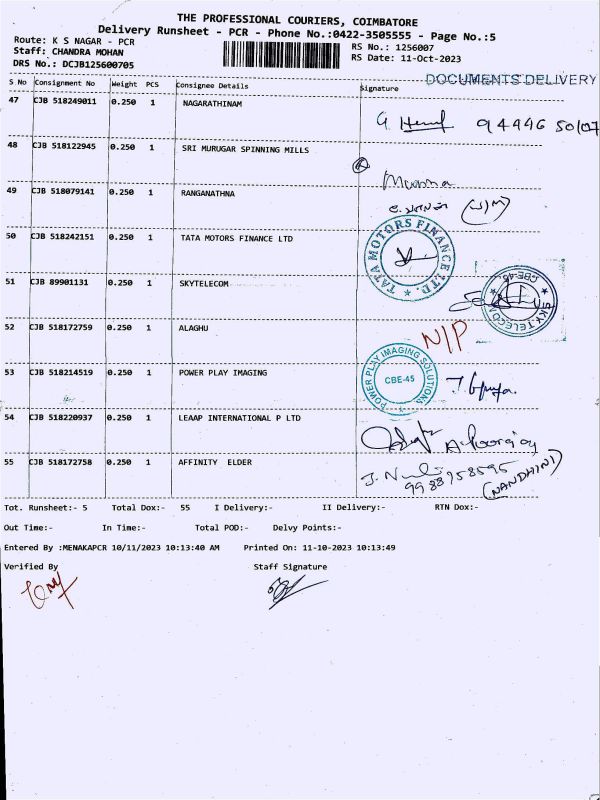 THE PROFESSIONAL COURIERS, COIMBATORE
Delivery Runsheet - PCR - Phone No.:0422-3505555 - Page No.:5
Route: K S NAGAR - PCR
Staff: CHANDRA MOHAN
DRS No.: DCJB125600705
RS No.: 1256007
RS Date: 11-Oct-2023
DOCUMENTS DELIVERY
S No Consignment No Weight PCS Consignee Details Signature
47 CJB 518249011 0.250 1 NAGARATHINAM
48 CJB 518122945 0.250 1 SRI MURUGAR SPINNING MILLS
49 CJB 518079141 0.250 1 RANGANATHNA
50 CJB 518242151 0.250 1 TATA MOTORS FINANCE LTD
TATA MOTORS FINANCE LTD.
51 CJB 89901131 0.250 1 SKYTELECOM
SKY TELECOM
CBE-45
52 CJB 518172759 0.250 1 ALAGHU N/P
53 CJB 518214519 0.250 1 POWER PLAY IMAGING
POWER PLAY IMAGING SOLUTIONS
CBE-45
54 CJB 518220937 0.250 1 LEAAP INTERNATIONAL P LTD
55 CJB 518172758 0.250 1 AFFINITY ELDER
9988958595
(NANDHINI)
Tot. Runsheet:- 5 Total Dox:- 55 I Delivery:- II Delivery:- RTN Dox:-
Out Time:- In Time:- Total POD:- Delvy Points:-
Entered By :MENAKAPCR 10/11/2023 10:13:40 AM Printed On: 11-10-2023 10:13:49
Verified By Staff Signature